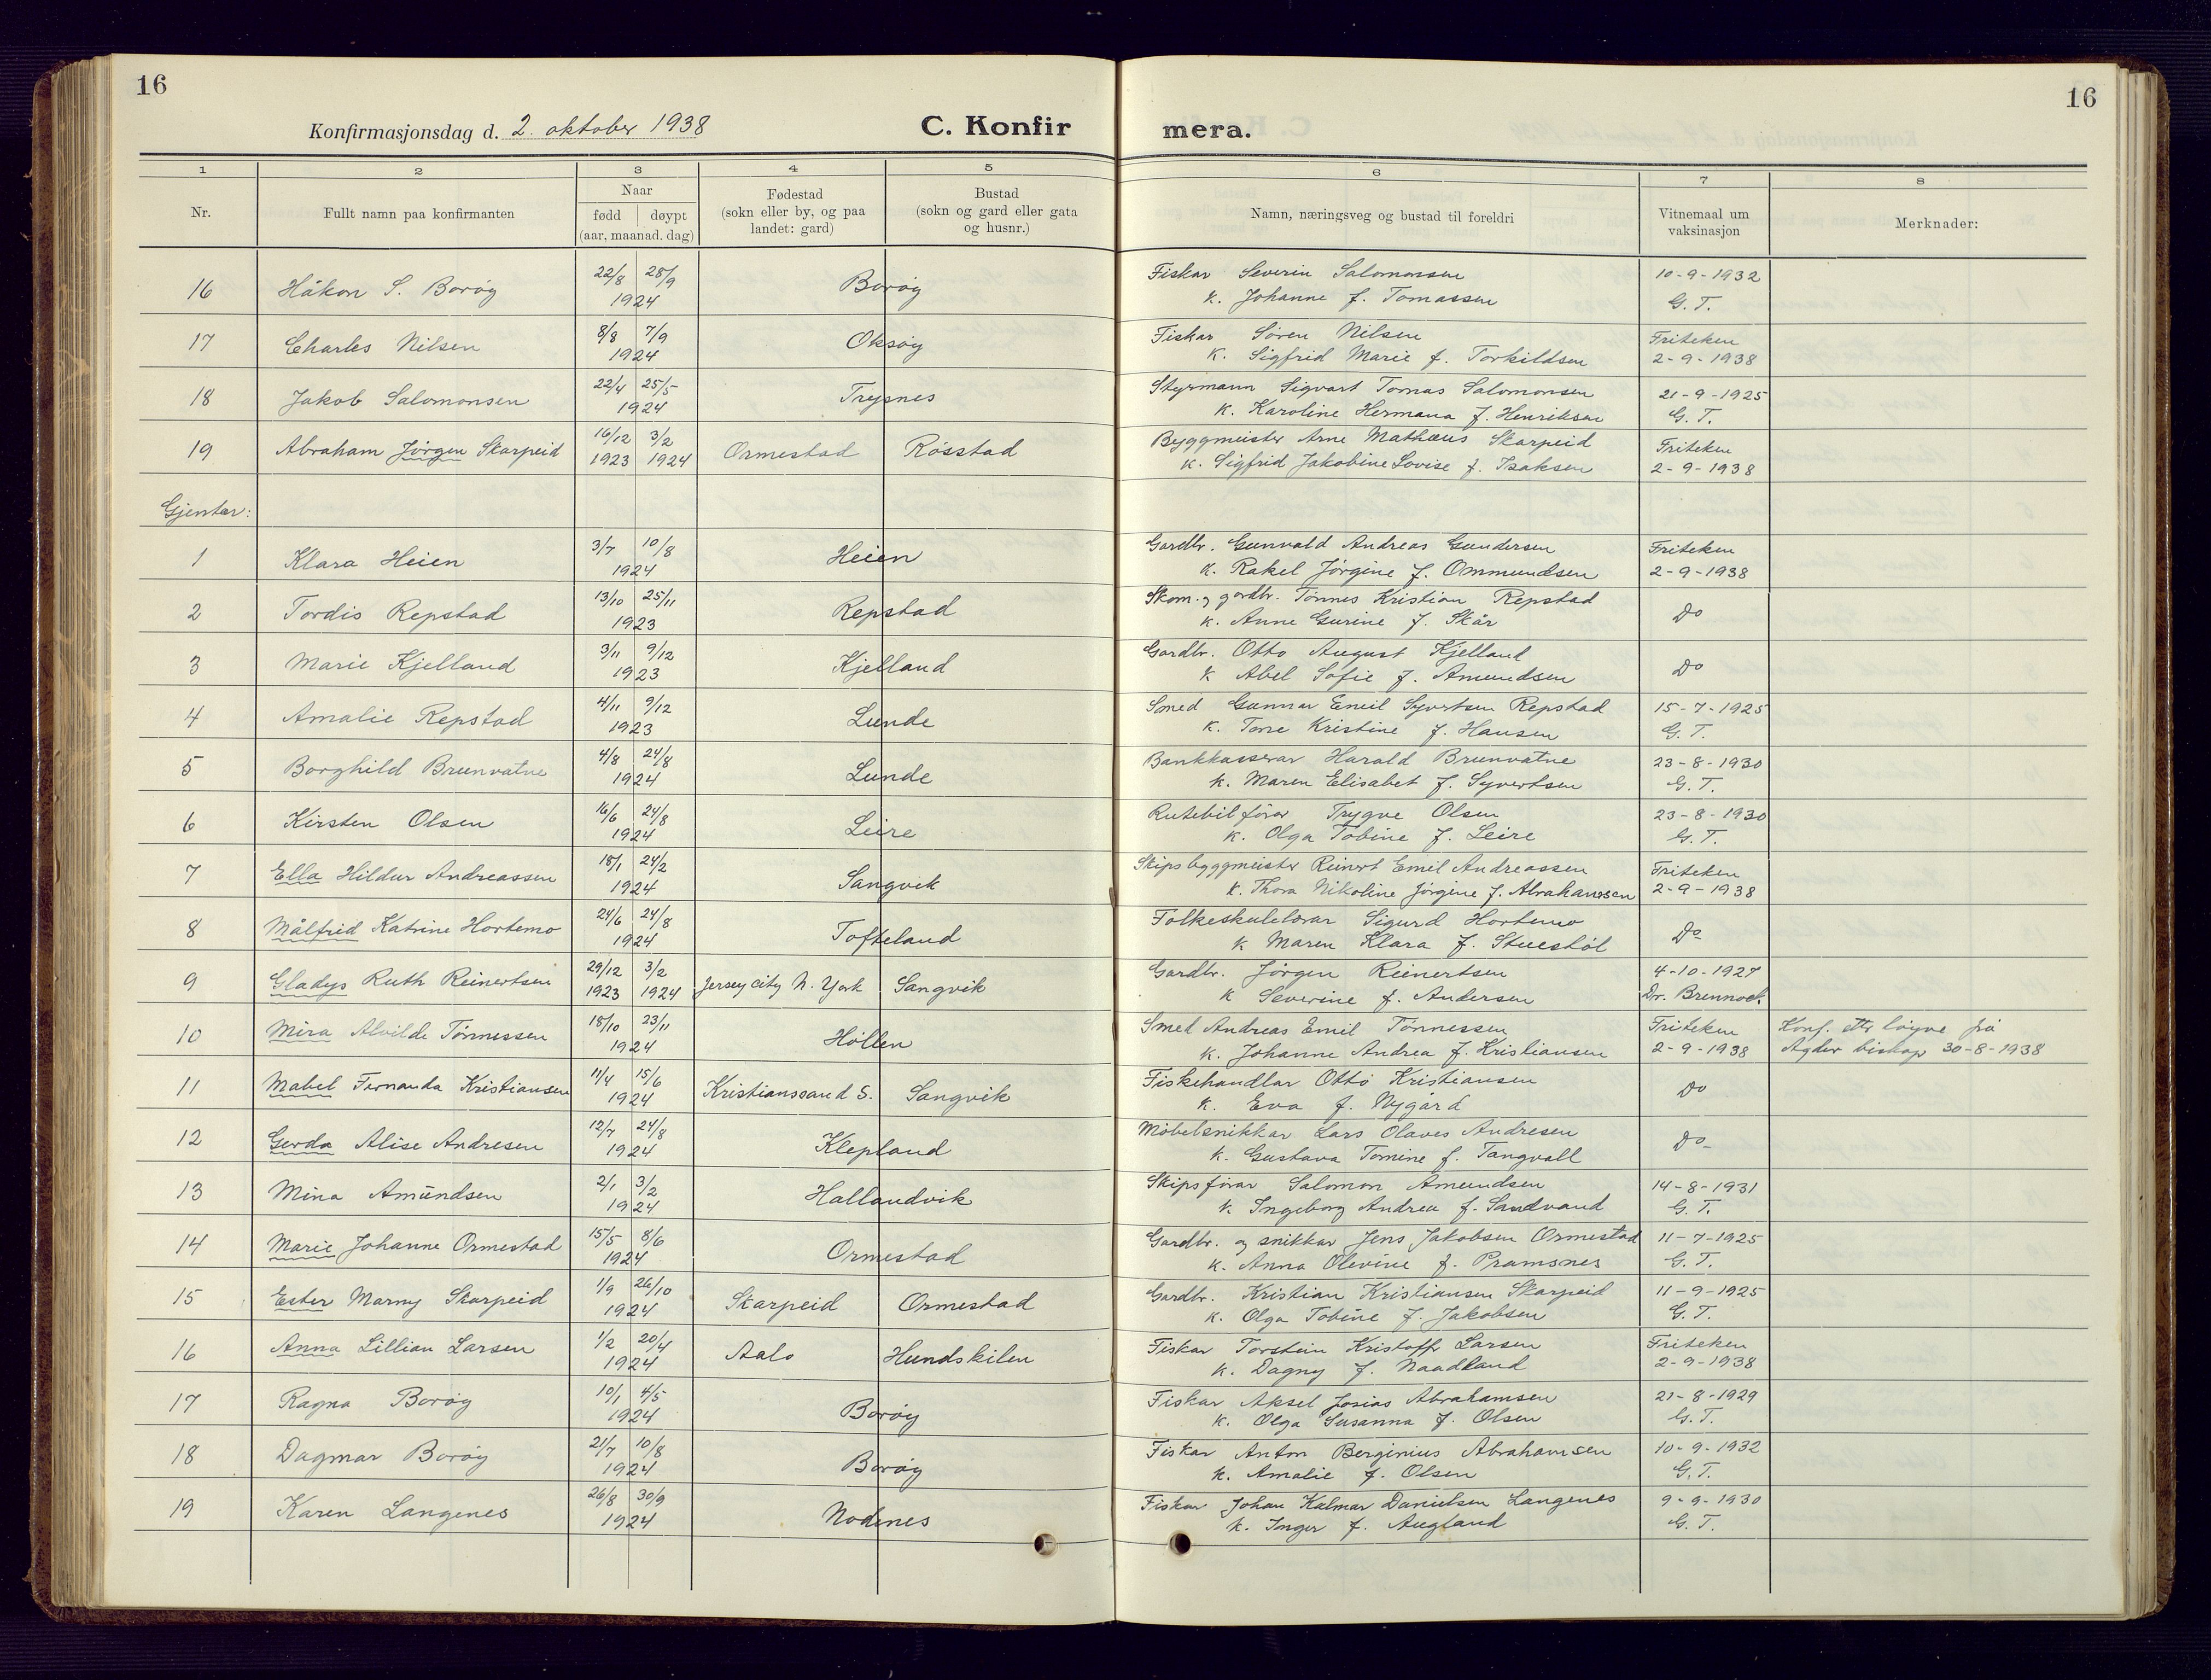 16
16
Konfirmasjonsdag d. 2. oktober 1938
C. Konfir mera.
1 2 3 4 5 6 7 8
Nr.
Fullt namn paa konfirmanten
Naar
født | døypt
(aar, maanad. dag)
Fødestad
(sokn eller by, og paa
landet: gard)
Bustad
(sokn og gard eller gata
og husnr.)
Namn, næringsveg og bustad til foreldri
Vitnemaal um
vaksinasjon
Merknader:
16 Håkon S. Borøy 22/8 28/9 1924 Borøy Fiskar Severin Salomonsen 10-9-1932
k. Johanne f. Tomassen G. T.
17 Charles Nilsen 8/8 7/9 1924 Oksøy Fiskar Søren Nilsen Friteken
k. Sigfrid Marie f. Torkildsen 2-9-1938
18 Jakob Salomonsen 22/4 25/5 1924 Trysnes Styrmann Sigvart Tomas Salomonsen 21-9-1925
k. Karoline Hermana f. Henriksen G. T.
19 Abraham Jørgen Skarpeid 16/12 1923 3/2 1924 Ormestad Røsstad Byggmeister Arne Mathæus Skarpeid Friteken
k. Sigfrid Jakobine Lovise f. Isaksen 2-9-1938
Gjentar:
1 Klara Heien 3/7 10/8 1924 Heien Gardbr. Gunvald Andreas Gundersen Friteken
k. Rakel Jørgine f. Ommundsen 2-9-1938
2 Tordis Repstad 13/10 25/11 1923 Repstad Skom. og gardbr. Tønnes Kristian Repstad Do
k. Anne Gurine f. Skår
3 Marie Kjelland 3/11 9/12 1923 Kjelland Gardbr. Otto August Kjelland Do
k Abel Sofie f. Amundsen
4 Amalie Repstad 4/11 9/12 1923 Lunde Smed Gunnar Emil Syvertsen Repstad 15-7-1925
k. Tone Kristine f. Hansen G. T.
5 Borghild Brunvatne 4/8 24/8 1924 Lunde Bankkasserar Harald Brunvatne 23-8-1930
k. Maren Elisabet f. Syvertsen G. T.
6 Kirsten Olsen 16/6 24/8 1924 Leire Rutebilførar Trygve Olsen 23-8-1930
k. Olga Tobine f. Leire G. T.
7 Ella Hildur Andreassen 18/1 24/2 1924 Sangvik Skipsbyggmeister Reinert Emil Andreassen Friteken
k. Thora Nikoline Jørgine f. Abrahamsen 2-9-1938
8 Målfrid Katrine Hortemo 24/6 24/8 1924 Tofteland Folkeskulelærar Sigurd Hortemo Do
k Maren Klara f. Stuestøl
9 Gladys Ruth Reinertsen 29/12 1923 3/2 1924 Jersey City N. York Sangvik Gardbr. Jørgen Reinertsen 4-10-1927
k Severine f. Andersen Dr. Brennod.
10 Mira Alvilde Tønnessen 18/10 23/11 1924 Høllen Smed Andreas Emil Tønnessen Friteken Konf. ette løyve frå
k. Johanne Andrea f. Kristiansen 2-9-1938 Agder biskop 30-8-1938
11 Mabel Fernanda Kristiansen 11/4 15/6 1924 Kristianssand S. Sangvik Fiskehandlar Otto Kristiansen Do
k. Eva f. Nygård
12 Gerda Alise Andresen 12/7 24/8 1924 Klepland Møbelsnikkar Lars Olaves Andresen Do
k. Gustava Tomine f. Tangvall
13 Mina Amundsen 2/1 3/2 1924 Hallandvik Skipsførar Salomon Amundsen 14-8-1931
k Ingeborg Andrea f. Sandvand G. T.
14 Marie Johanne Ormestad 15/5 8/6 1924 Ormestad Gardbr. og snikkar Jens Jakobsen Ormestad 11-7-1925
k. Anna Olevine f. Pramsnes G. T.
15 Ester Marny Skarpeid 1/9 26/10 1924 Skarpeid Ormestad Gardbr. Kristian Kristiansen Skarpeid 11-9-1925
k. Olga Tobine f. Jakobsen G. T.
16 Anna Lillian Larsen 1/2 20/4 1924 Aalo Hundskilen Fiskar Torstein Kristoffr Larsen Friteken
k. Dagny f. Naadland 2-9-1938
17 Ragna Borøy 10/1 4/5 1924 Borøy Fiskar Aksel Josias Abrahamsen 21-8-1929
k. Olga Susanna f. Olsen G. T.
18 Dagmar Borøy 21/7 10/8 1924 Borøy Fiskar Anton Berginius Abrahamsen 10-9-1932
k. Amalie f. Olsen G. T.
19 Karen Langenes 26/8 30/9 1924 Nodenes Fiskar Johan Kalmar Danielsen Langenes 9-9-1930
k. Inger f. Augland G. T.